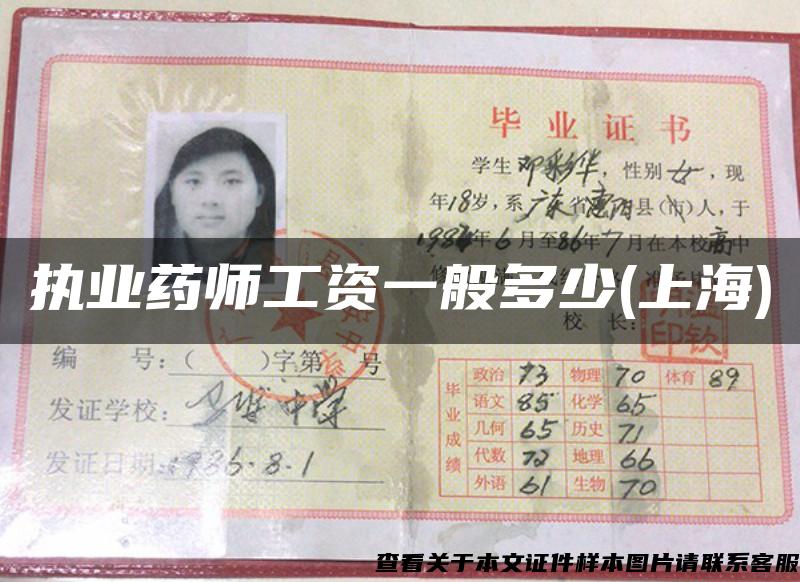 毕业证书
学生邓彩华，性别女，现
年18岁，系广东省惠阳县(市)人，于
1984年6月至86年7月在本校高中
执业药师工资一般多少(上海)
校 长：
编 号：（ ）字第 号
发证学校：
中学
发证日期：1986.8.1
毕业成绩
政治 73 物理 70 体育 89
语文 85 化学 65
几何 65 历史 71
代数 72 地理 66
外语 61 生物 70
查看关于本文证件样本图片请联系客服